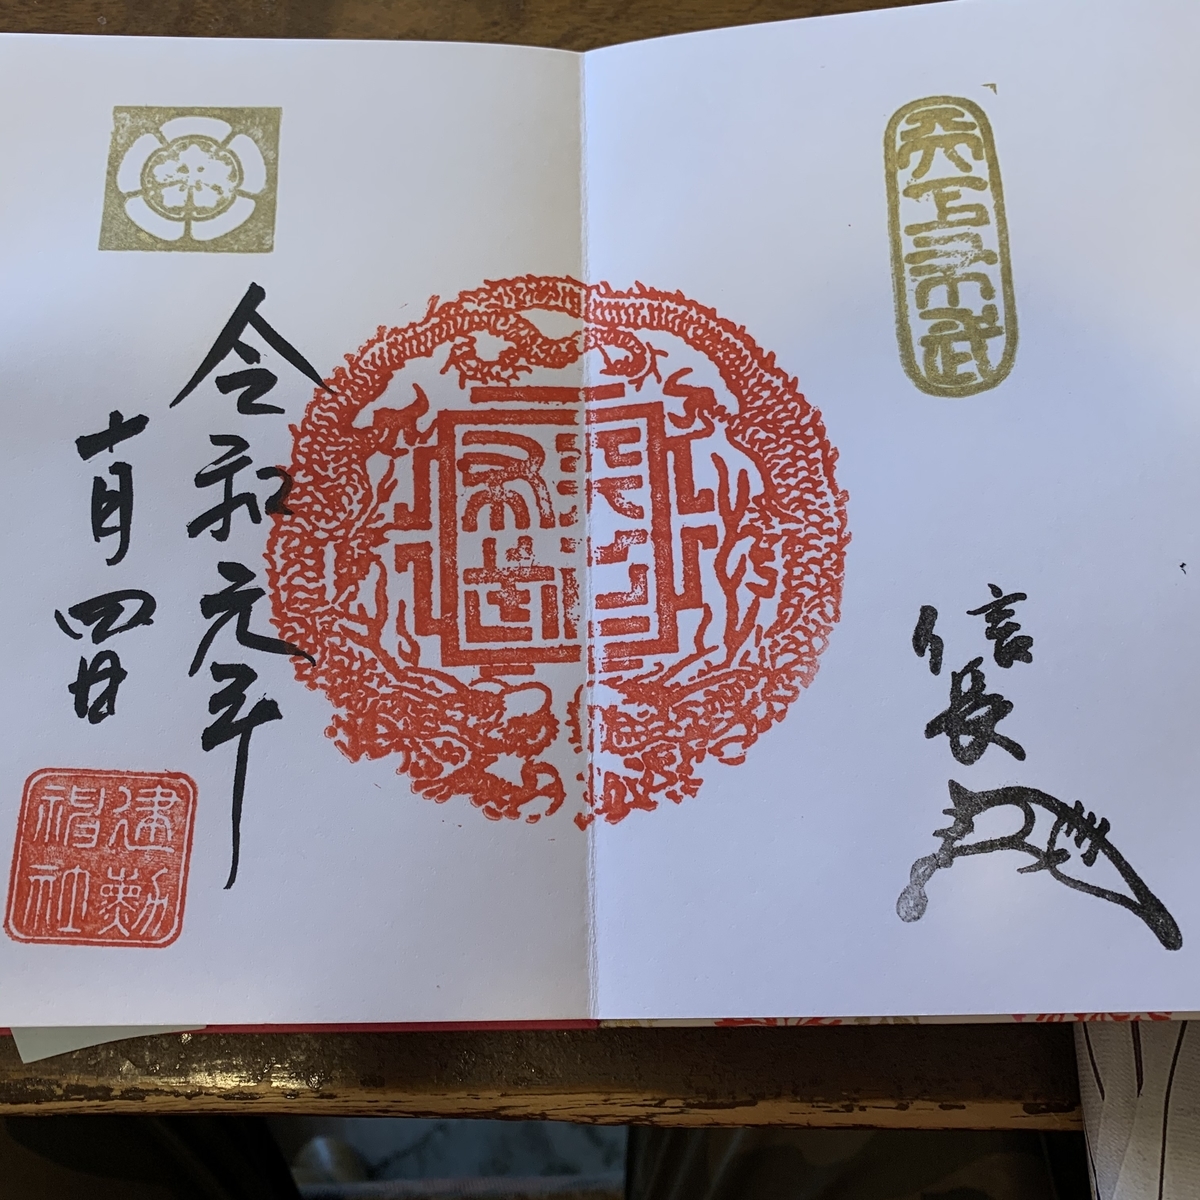 天下布武
信長
天下
布武
令和元年
十月四日
建勲
神社